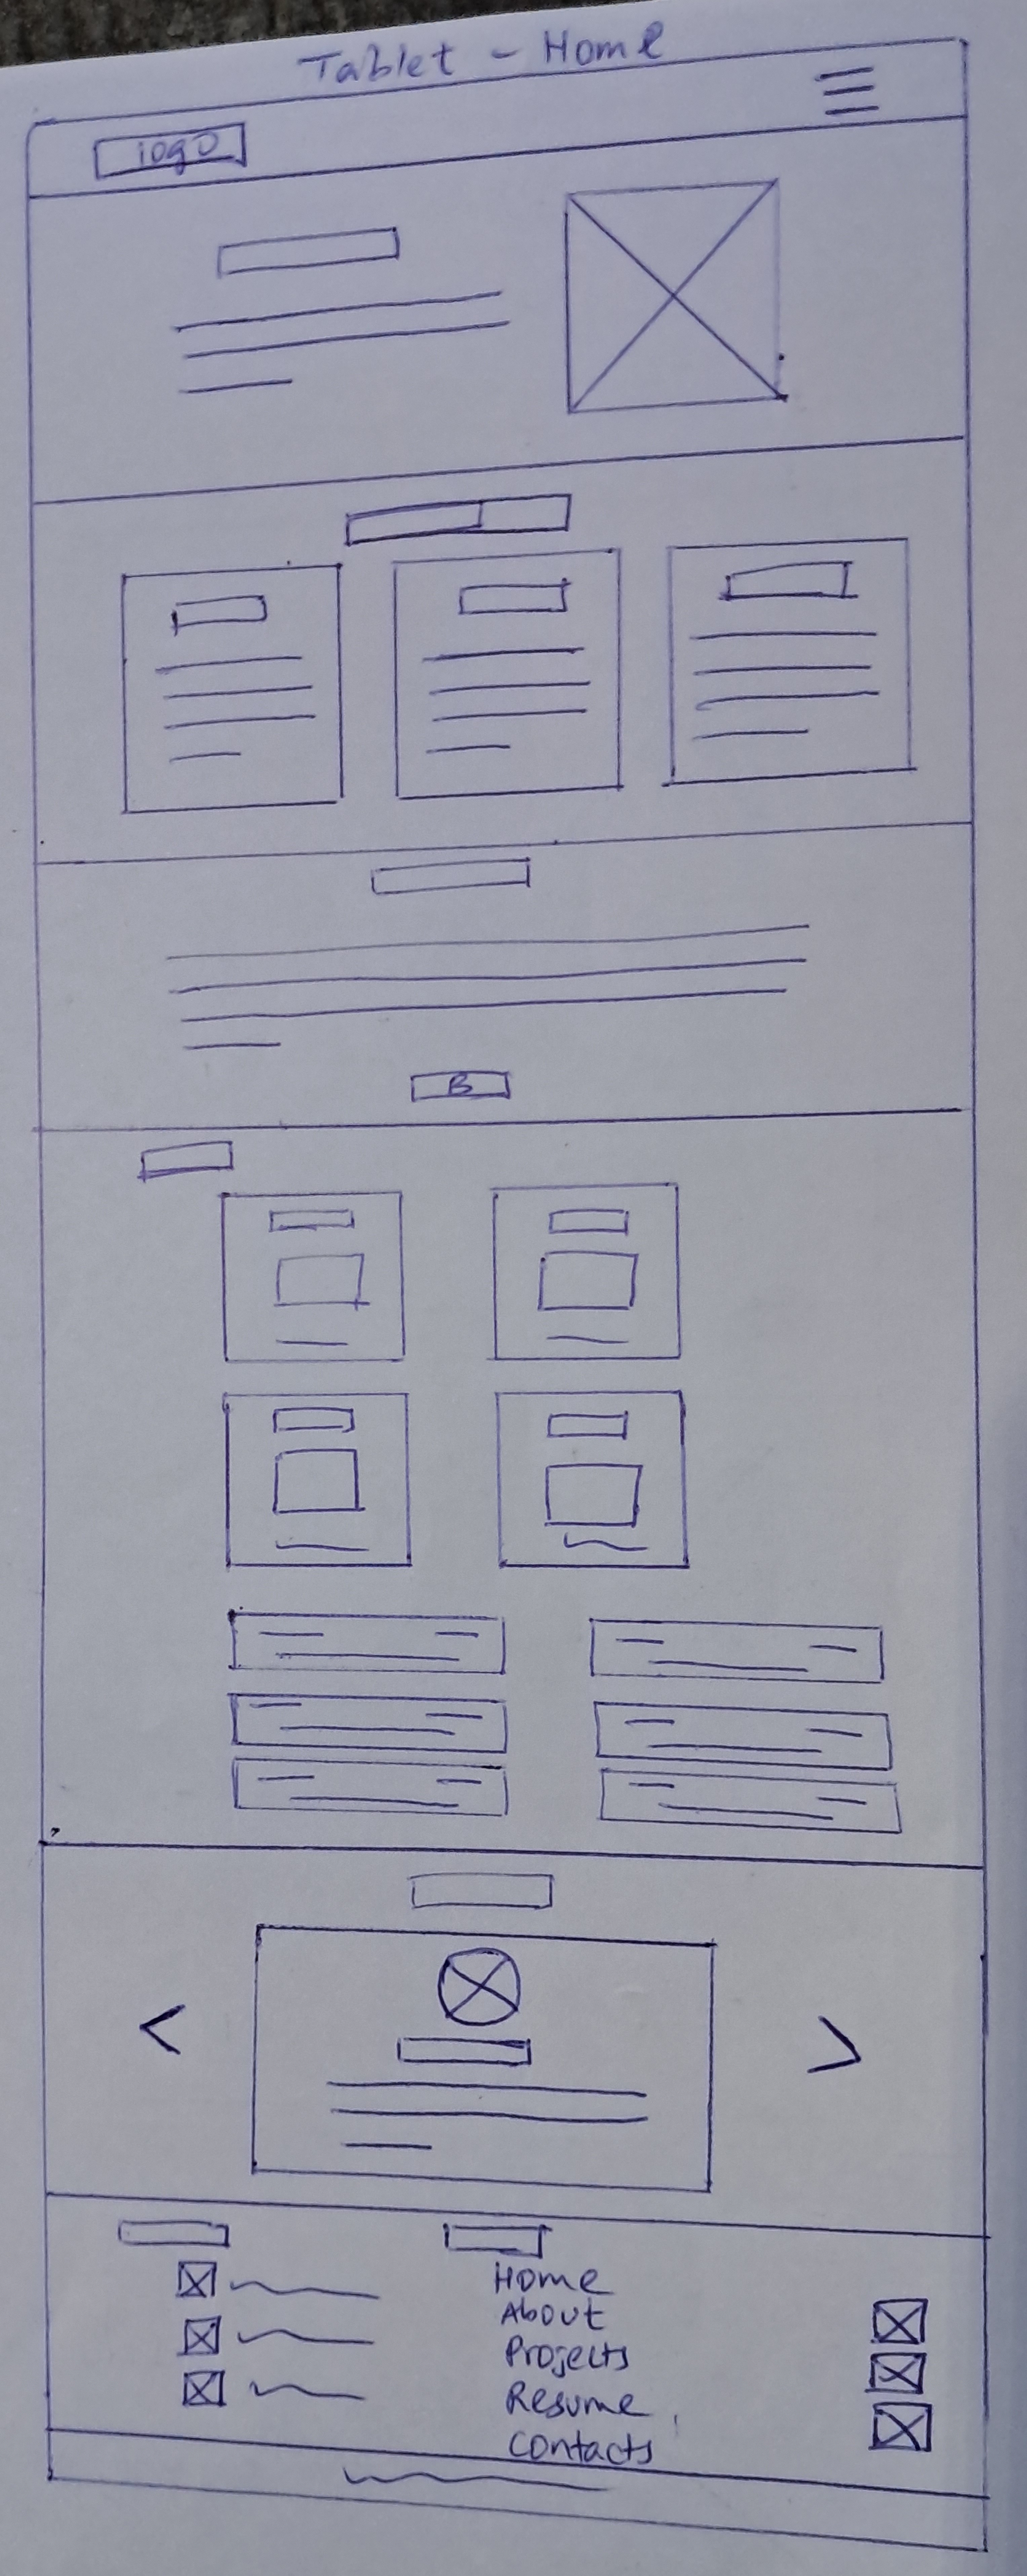 Tablet - Home
logo
B
Home
About
Projects
Resume
Contacts